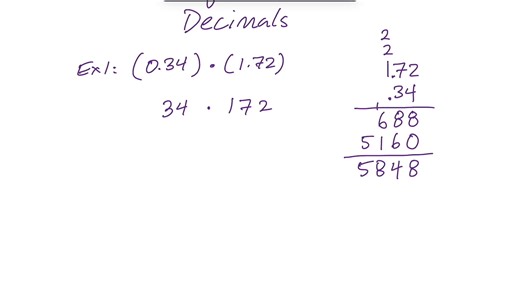 Decimals
Ex1: (0.34) · (1.72)
34 · 172
2
2
1.72
.34
1
688
5160
5848